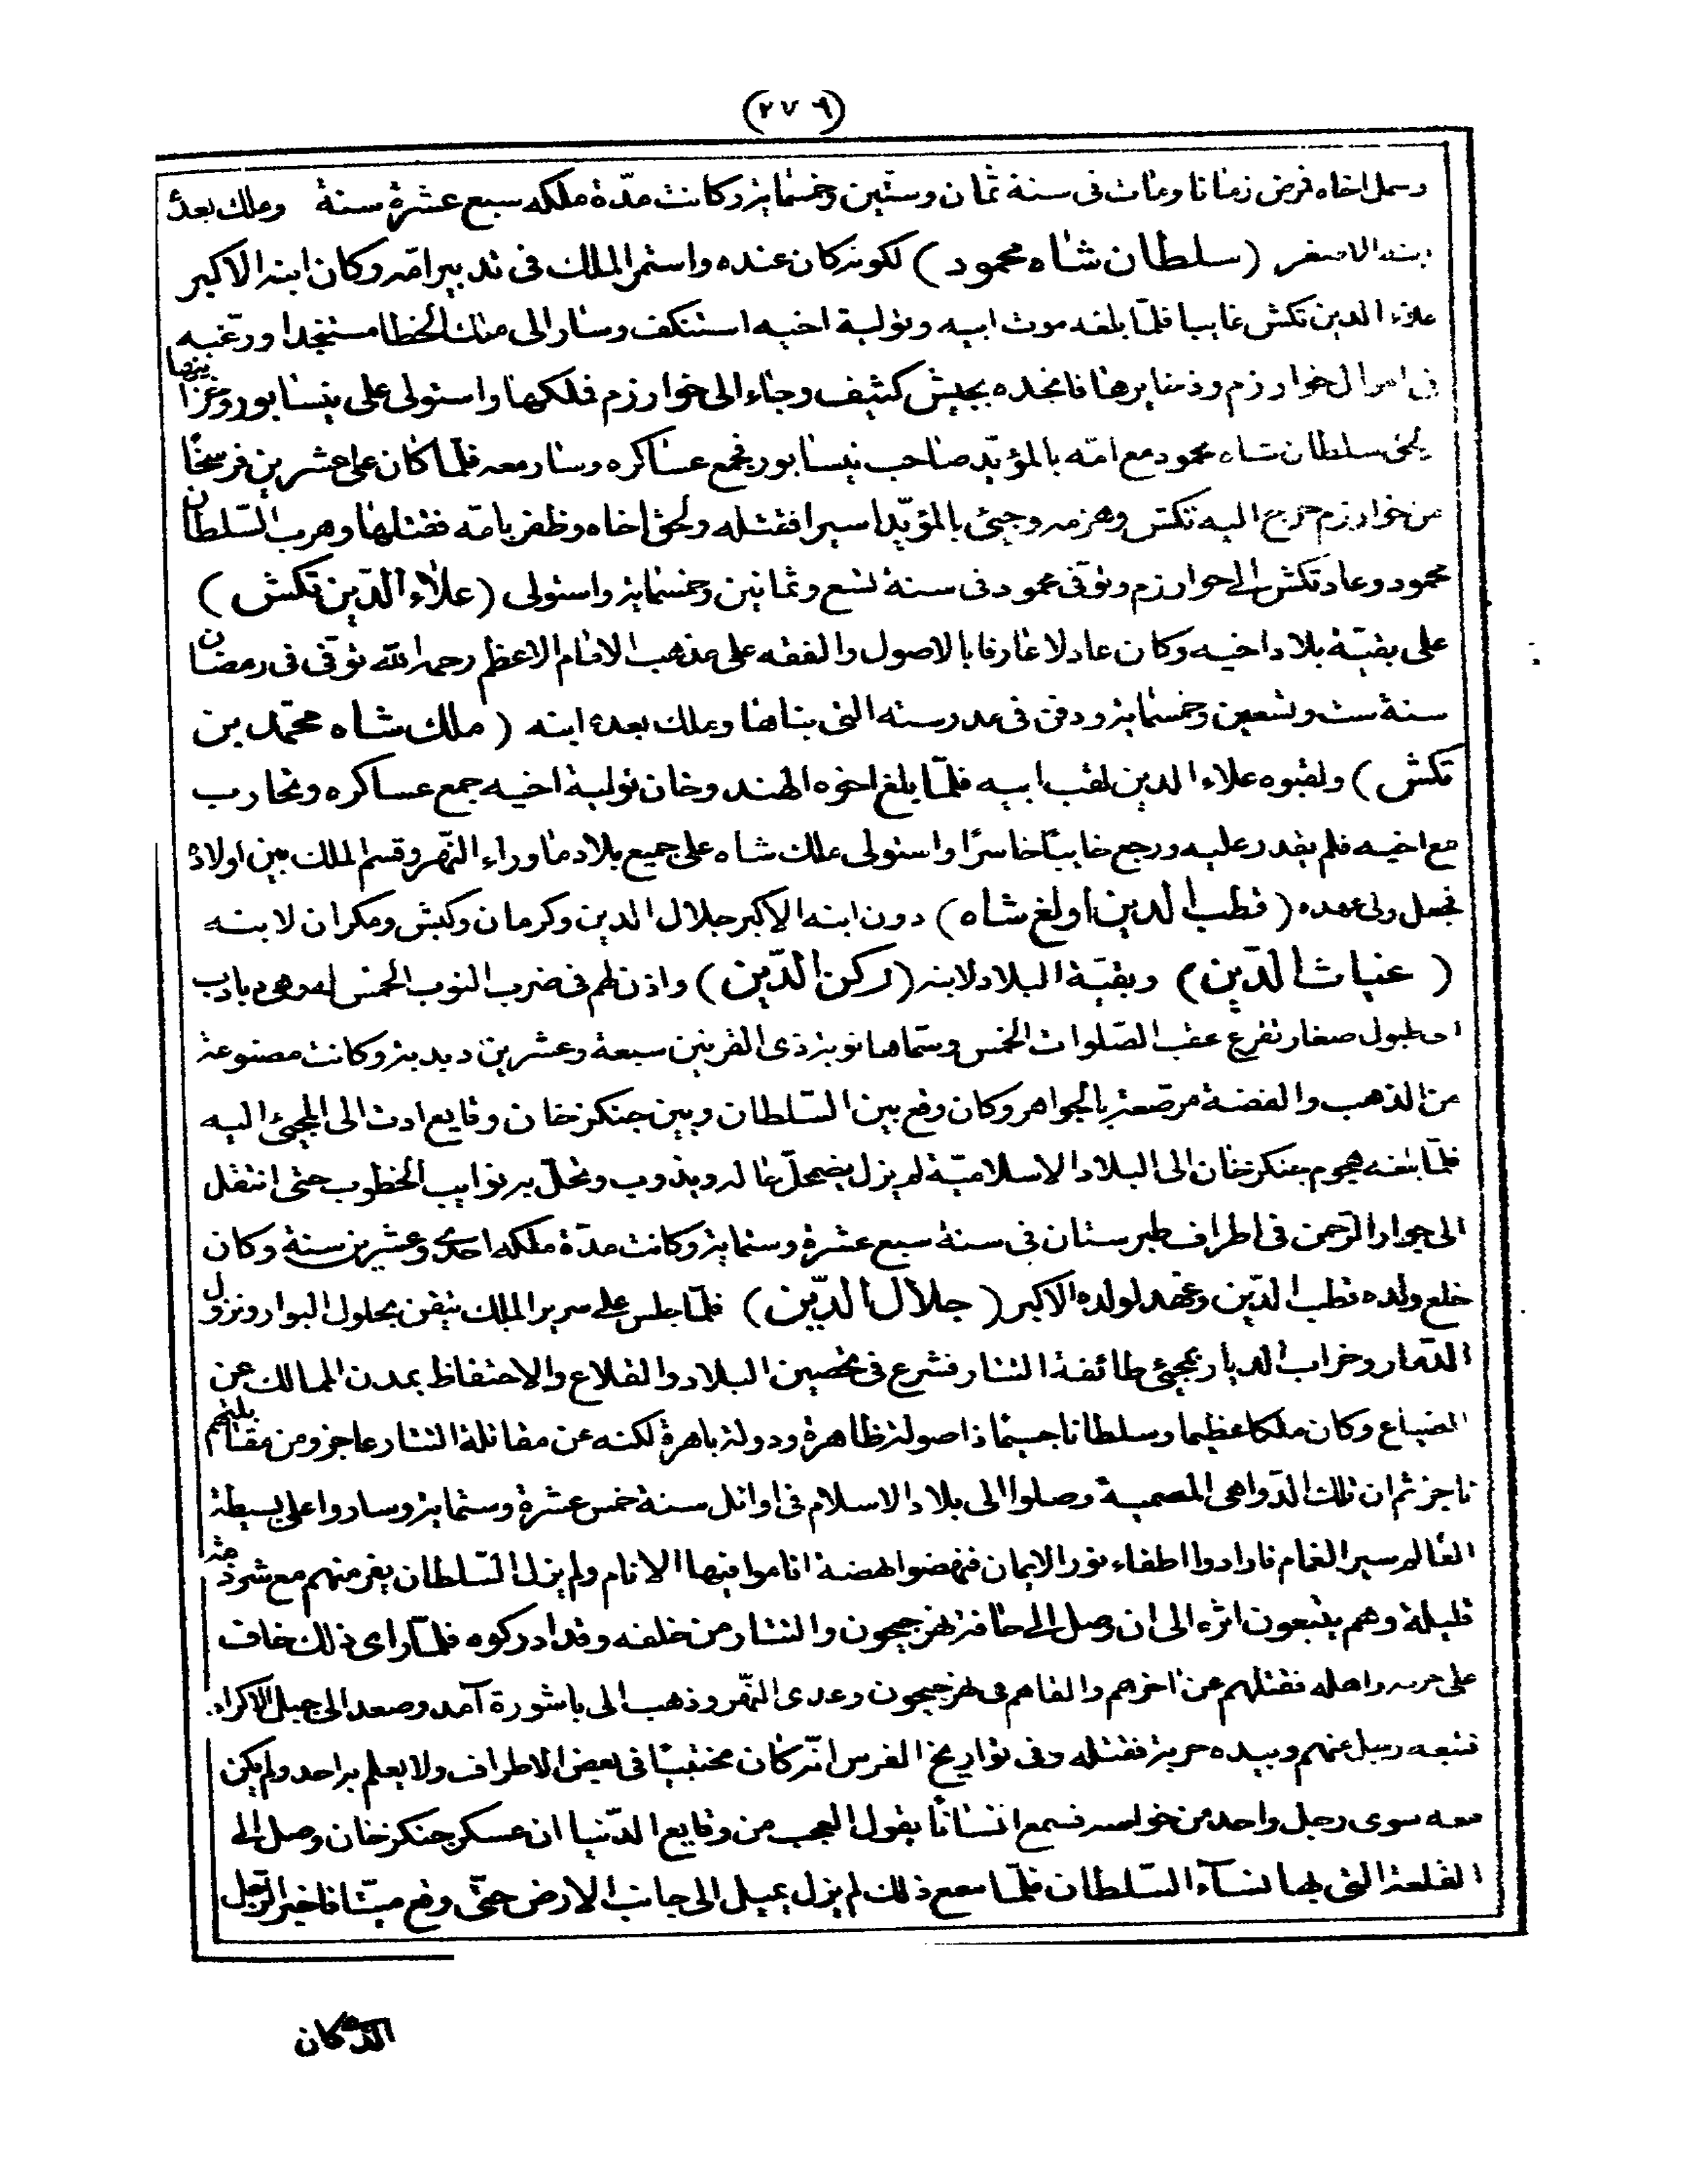 (٢٧٩)
وسمل اخاه فمرض زمانا ومات فى سنة ثمان وستين وخمسماية وكانت مدّة ملكه سبع عشرة سنة وملك بعده
ابنه الاصغر (سلطان شاه محمود) لكونه كان عنده واستمر الملك فى تدبير امّه وكان ابنه الاكبر
علاء الدين تكش غايبا فلمّا بلغه موت ابيه وتولية اخيه استنكف وسار الى ملك الخطا مستنجدا ورغّبه
فى اموال خوارزم وذخايرها فانجده بجيش كثيف وجاء الى خوارزم فملكها واستولى على نيسابور وغزا
لحق سلطان شاه محمود مع امّه بالمؤيّد صاحب نيسابور فجمع عساكره وسار معه فلمّا كان على عشرين فرسخًا
من خوارزم خرج اليه تكش وهزمه وجيئ بالمؤيّد اسيرا فقتله ولحق اخاه وظفر بامّه فقتلها وهرب السّلطان
محمود وعاد تكش الى خوارزم وتوفّى محمود فى سنة تسع وثمانين وخمسماية واستولى (علاء الدّين تكش)
على بقيّة بلاد اخيه وكان عادلا عارفا بالاصول والفقه على مذهب الامام الاعظم رحمه الله توفّى فى رمضان
سنة ست وتسعين وخمسماية ودفن فى مدرسته التى بناها وملك بعده ابنه (ملك شاه محمّد بن
تكش) ولقبوه علاء الدين لقب ابيه فلمّا بلغ اخوه الهند وخان تولية اخيه جمع عساكره وتحارب
مع اخيه فلم يقدر عليه ورجع خايبًا خاسرًا واستولى ملك شاه على جميع بلاد ما وراء النّهر وقسم الملك بين اولاده
فجعل ولى عهده (قطب الدين اولغ شاه) دون ابنه الاكبر جلال الدين وكرمان وكيش ومكران لابنه
(غياث الدّين) وبقيّة البلاد لابنه (ركن الدّين) واذن لهم فى ضرب النوب الخمس له وهى دبادب
اى طبول صغار تقرع عقب الصّلوات الخمس وسمّاها نوبة ذى القرنين سبعة وعشرين دبدبة وكانت مصنوعة
من الذهب والفضة مرصّعة بالجواهر وكان وقع بين السّلطان وبين جنكز خان وقايع ادت الى المجيئ اليه
فلمّا بلغه هجوم جنكز خان الى البلاد الاسلاميّة لم يزل يضمحلّ حاله ويذوب وتحلّ به نوايب الخطوب حتى انتقل
الى جوار الرّحمن فى اطراف طبرستان فى سنة سبع عشرة وستماية وكانت مدّة ملكه احدى وعشرين سنة وكان
خلع ولده قطب الدّين وعهد لولده الاكبر (جلال الدّين) فلمّا جلس على سرير الملك تيقن بحلول البوار ونزول
الدّمار وخراب الديار بمجيئ طائفة التتار فشرع فى تحصين البلاد والقلاع والاحتفاظ بمدن الممالك عن
الضياع وكان ملكا عظيما وسلطانا جسيما ذا صولة ظاهرة ودولة باهرة لكنه عن مقاتلة التتار عاجز ومن مقابلتهم
ناجز ثم ان تلك الدّواهى المصمية وصلوا الى بلاد الاسلام فى اوائل سنة خمس عشرة وستماية وساروا على بسيطة
العالم سير الغمام فارادوا اطفاء نور الايمان فنهضوا لهضة اقاموا فيها الانام ولم يزل السّلطان يفر منهم مع شرذمة
قليلة وهم يتبعون اثره الى ان وصل الى حافة نهر جيحون والتتار من خلفه وقد ادركوه فلمّا راى ذلك خاف
على حرمه واهله فقتلهم عن اخرهم والقاهم فى نهر جيحون وعدى النّهر وذهب الى باشورة آمد وصعد الى جبل الاكراد
فتبعه رجل منهم وبيده حربة فقتله وفى تواريخ الفرس انّه كان مختفيًا فى بعض الاطراف ولا يعلم به احد ولم يكن
معه سوى رجل واحد من خواصه فسمع انسانًا يقول العجب من وقايع الدّنيا ان عسكر جنكز خان وصل الى
القلعة التى بها نسآء السّلطان فلمّا سمع ذلك لم يزل يميل الى جانب الارض حتّى وقع ميّتا فاخبر الرّجل
الذى كان